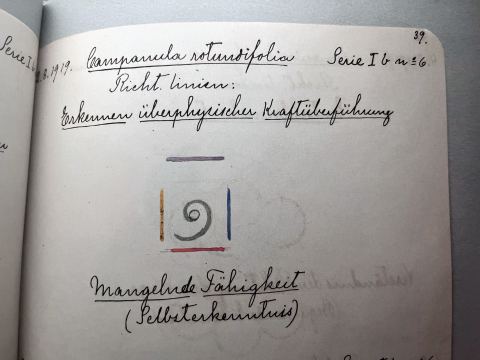 39.
Serie I b
8. 1919. Campanula rotundifolia Serie I b nº 6
Richt. linien:
Erkennen überphysischer Kraftüberführung
Mangelnde Fähigkeit
(Selbsterkenntnis)